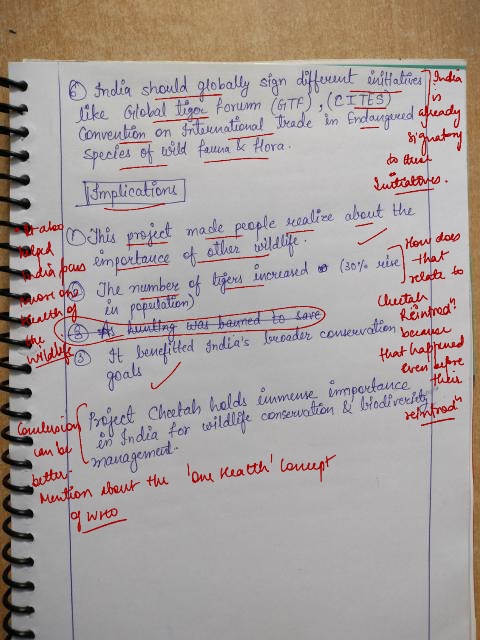 ⑥ India should globally sign different initiatives
like Global tiger forum (GTF), (CITES)
Convention on International trade in Endangered
species of wild fauna & flora.
India
is
already
signatory
to these
Initiatives.
Implications
① This project made people realize about the
importance of other wildlife.
② The number of tigers increased (30% rise
in population)
③ As hunting was banned to save
③ It benefitted India's broader conservation
goals
It also
helped
India focus
more on
health of
the
wildlife
How does
that
relate to
Cheetah
Reintrodn
because
that happened
even before
their
reintrodn
Project Cheetah holds immense importance
in India for wildlife conservation & biodiversity
management.
Conclusion
can be
better-
Mention about the 'One Health' Concept
of WHO